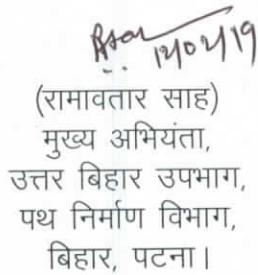 12/02/19
(रामावतार साह)
मुख्य अभियंता,
उत्तर बिहार उपभाग,
पथ निर्माण विभाग,
बिहार, पटना।